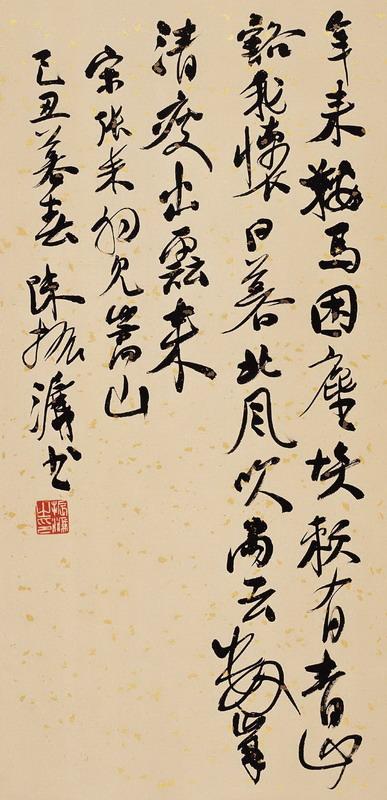 年来鞍马困塵埃赖有青山
豁我懷日暮北风吹雨去数峯
清瘦出雲来
宋张耒初见嵩山
己丑暮春 陳振濂书
振濂之印